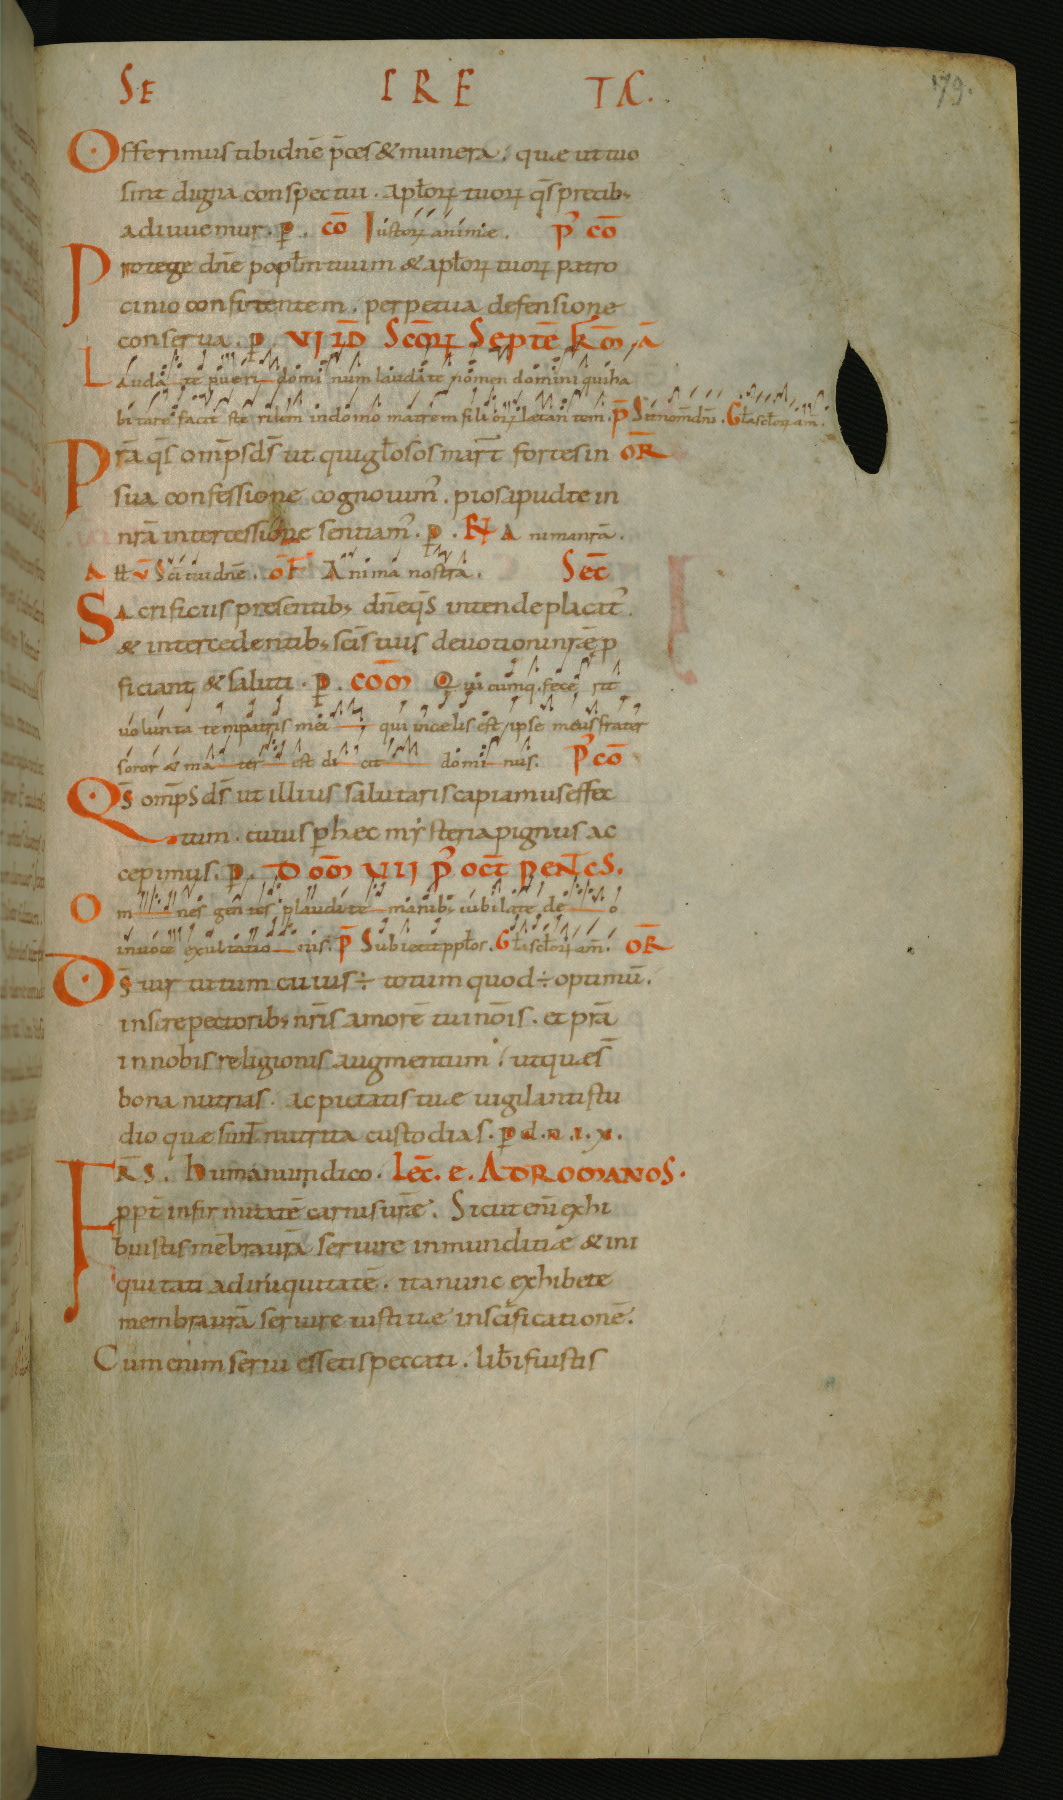 SE CRE TA.
79.
Offerimus tibi dnē p̄ces & munera. quae ut tuo
sint digna conspectui. aplorꝝ tuorꝝ q̄s precib;
adiuuemur. p̄. cō Iustorꝝ animae. P̄ cō
Protege dnē popl̄m tuum & aplorꝝ tuorꝝ patro
cinio confitentem. perpetua defensione
conserua. p̄. VI ID Sc̄ōrꝝ Septē frm̄ ā
Laudate pueri dominum laudate nomen domini qui ha
bitare facit sterilem in domo matrem filiorꝝ laetantem. p̄ Sit nom̄ dn̄i. Gl̄a sc̄lorꝝ am̄.
Pr̄ā q̄s om̄ps d̄s ut qui gl̄osos mar̄t fortes in OR̄
sua confessione cognouim̄. pios apud te in
nr̄ā intercessione sentiam̄. p̄. R̄ Anima nr̄ā.
All v̄ Sc̄i tui dnē. of̄ Anima nostra. Sec̄
Sacrificiis presentib; dnē q̄s intende placat̄.
& intercedentib; sc̄is tuis deuotioni nr̄ē p
ficiant & saluti. p̄. com̄ Quicumq. fecerit
uoluntatem patris mei qui in caelis est ipse meus frater
soror & mater est dicit dominus. P̄ cō
Q̄s om̄ps d̄s ut illius salutaris capiamus effec
tum. cuius p hec mysteria pignus ac
cepimus. p̄. Dom̄ VII P̄ oct̄ pent̄cs.
Omnes gentes plaudite manib; iubilate deo
in uoce exultationis. p̄ Subiecit pplōs. Gl̄i sc̄lorꝝ am̄. OR̄
D̄s uirtutum cuius ÷ totum quod ÷ optimū.
insere pectorib; nr̄is amorē tui nōis. et pr̄ā
in nobis religionis augmentum. ut quae s̄
bona nutrias. ac pietatis tuae uigilanti stu
dio quae sunt nutrita custodias. p̄ d. n. i. x.
FR̄S. humanum dico. lec̄. e. AD ROMANOS.
ppt̄ infirmitatē carnis ur̄ae. Sicut enī exhi
buistis mēbra ur̄ā seruire inmunditiae & ini
quitati ad iniquitatē. ita nunc exhibete
membra ur̄ā seruire iustitiae in sc̄ificationē.
Cum enim serui essetis peccati. lib̄i fuistis